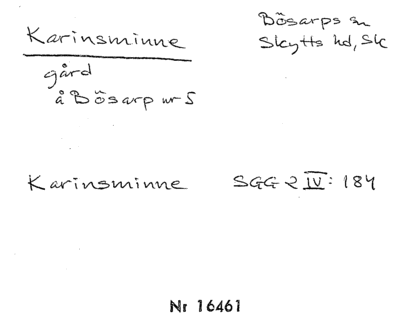 Karinsminne
gård
å Bösarp nr 5
Bösarps sn
Skytts hd, Sk
Karinsminne SGG 2 IV: 184
Nr 16461